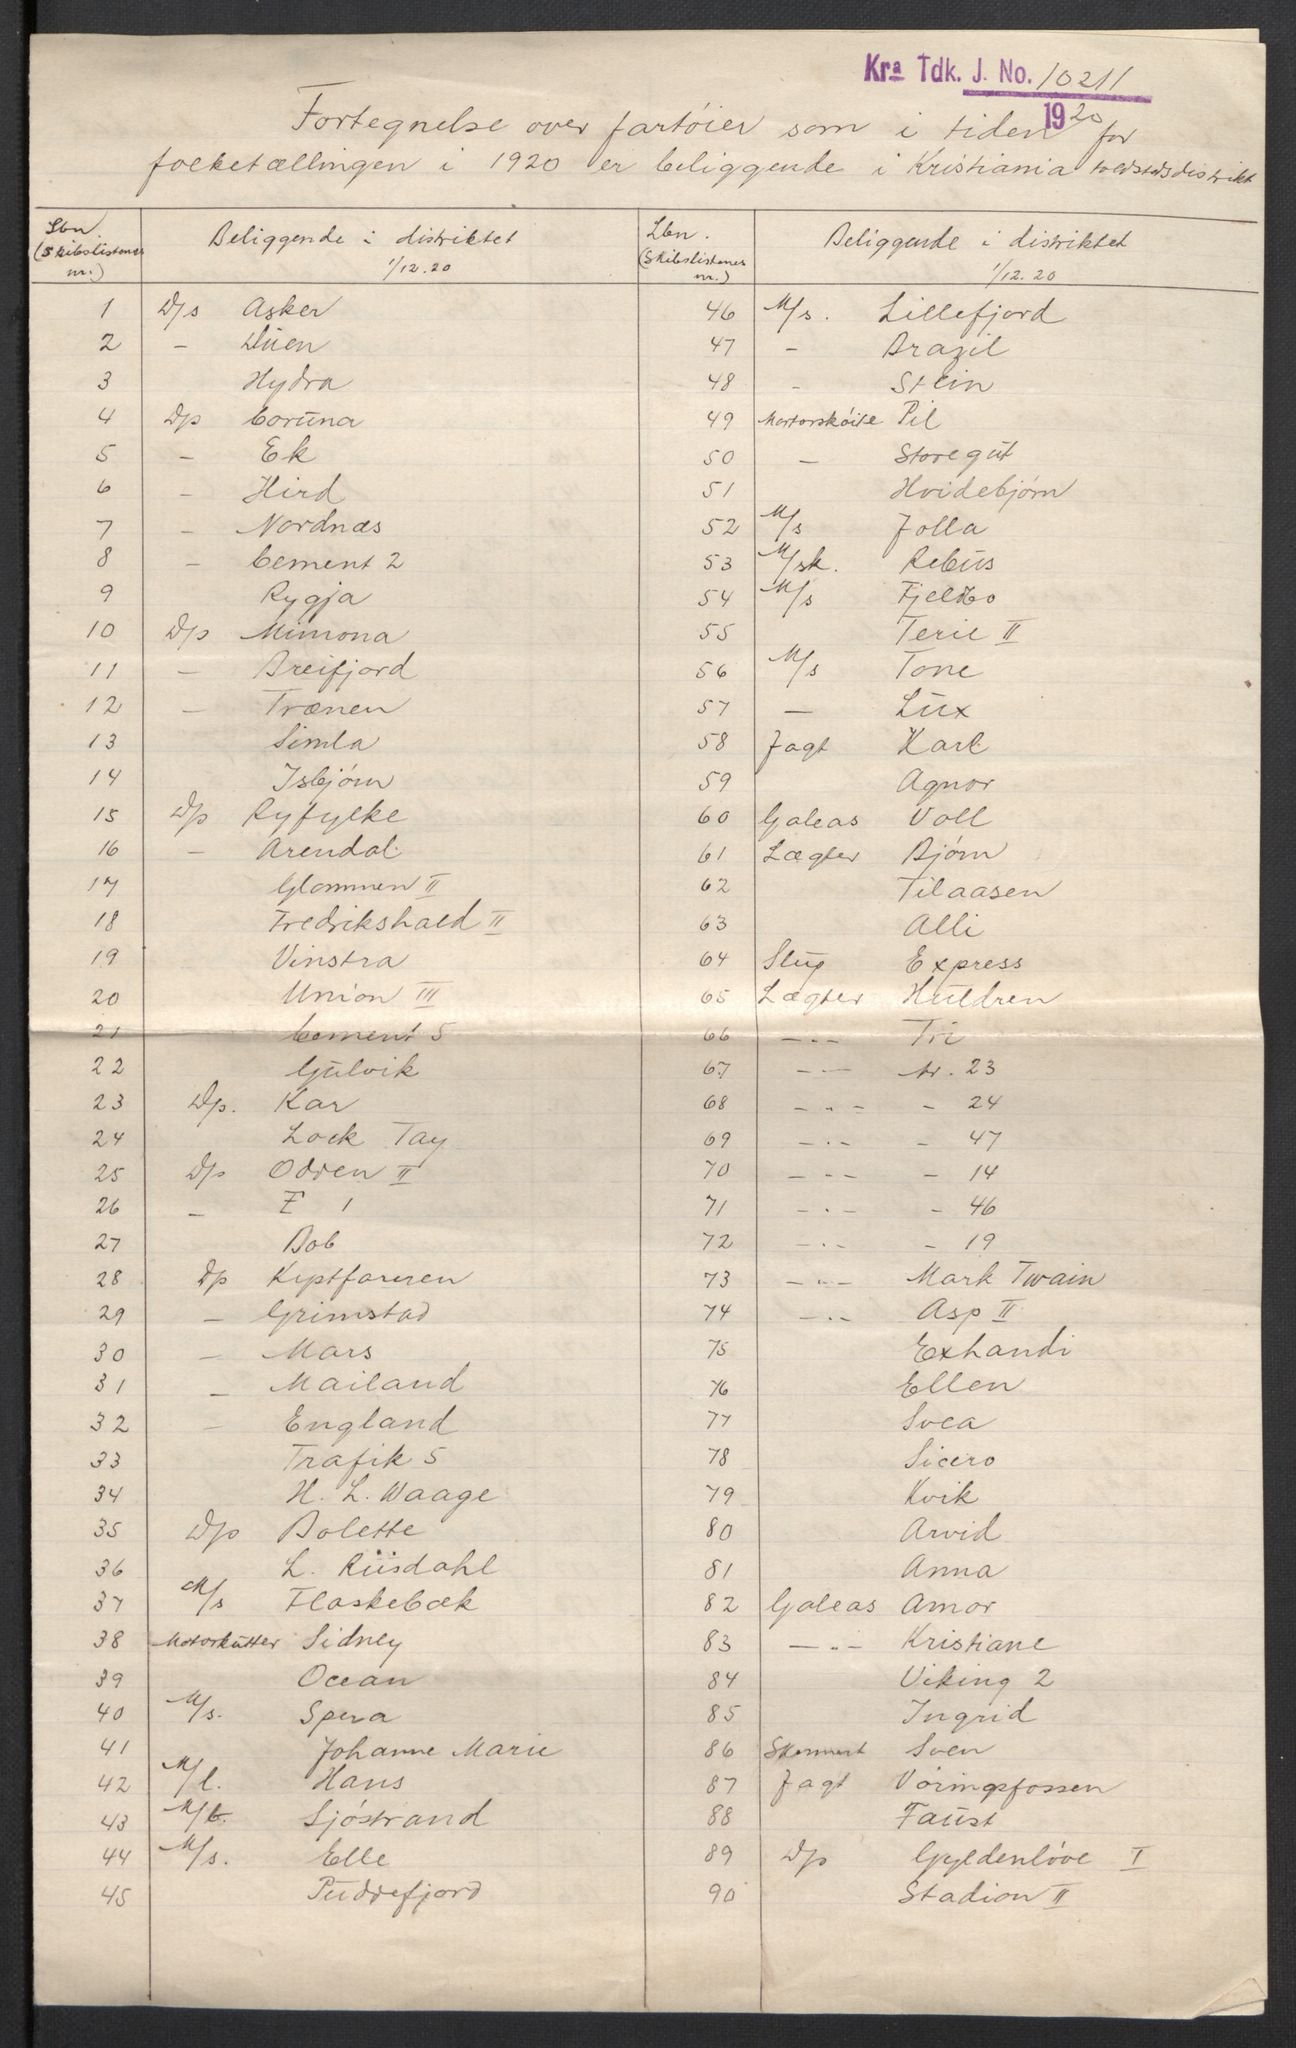 Kra Tdk. J. No. 10211
1920
Fortegnelse over fartøier som i tiden for
folketællingen i 1920 er beliggende i Kristiania toldstedsdistrikt
Lbn. (Skibslistenes nr.) Beliggende i distriktet 1/12.20
1 D/s Asker
2 - Duen
3 Hydra
4 D/s Coruna
5 - Ek
6 - Hird
7 - Nordnæs
8 - Cement 2
9 - Rygja
10 D/s Mimona
11 - Breifjord
12 - Trænen
13 Simla
14 Isbjørn
15 D/s Ryfylke
16 - Arendal
17 Glommen II
18 Fredrikshald II
19 Vinstra
20 Union III
21 Cement 5
22 Gulvik
23 D/s. Kar
24 Lock Tay
25 D/s Odden II
26 - F 1
27 Bob
28 D/s Kystfareren
29 - Grimstad
30 - Mars
31 - Mailand
32 - England
33 Trafik 5
34 H. L. Waage
35 D/s Bolette
36 L. Riisdahl
37 M/s Flaskebæk
38 Motorkutter Sidney
39 Ocean
40 M/s. Spera
41 Johanne Marie
42 M/l. Hans
43 M/b. Sjøstrand
44 M/s. Elle
45 Puddefjord
Lbn. (Skibslistenes nr.) Beliggende i distriktet 1/12.20
46 M/s. Lillefjord
47 - Brazil
48 - Stein
49 Mortorskøite Pil
50 - Storegut
51 Hvidebjørn
52 M/s Jolla
53 M/sk. Rebus
54 M/s Fjeldbo
55 Terje II
56 M/s Tone
57 - Lux
58 Jagt Karl
59 Agnor
60 Galeas Voll
61 Lægter Bjørn
62 Tilaasen
63 Alli
64 Slup Express
65 Lægter Huldren
66 -"- Tri
67 -"- nr. 23
68 -"- - 24
69 -"- - 47
70 -"- - 14
71 -"- - 46
72 -"- - 19
73 -"- Mark Twain
74 -"- Asp II
75 Exhandi
76 Ellen
77 Svea
78 Sicero
79 Kvik
80 Arvid
81 Anna
82 Galeas Amor
83 -"- Kristiane
84 Viking 2
85 Ingrid
86 Skonnert Sven
87 Jagt Vøringsfossen
88 Faust
89 D/s Gyldenløve I
90 Stadion II